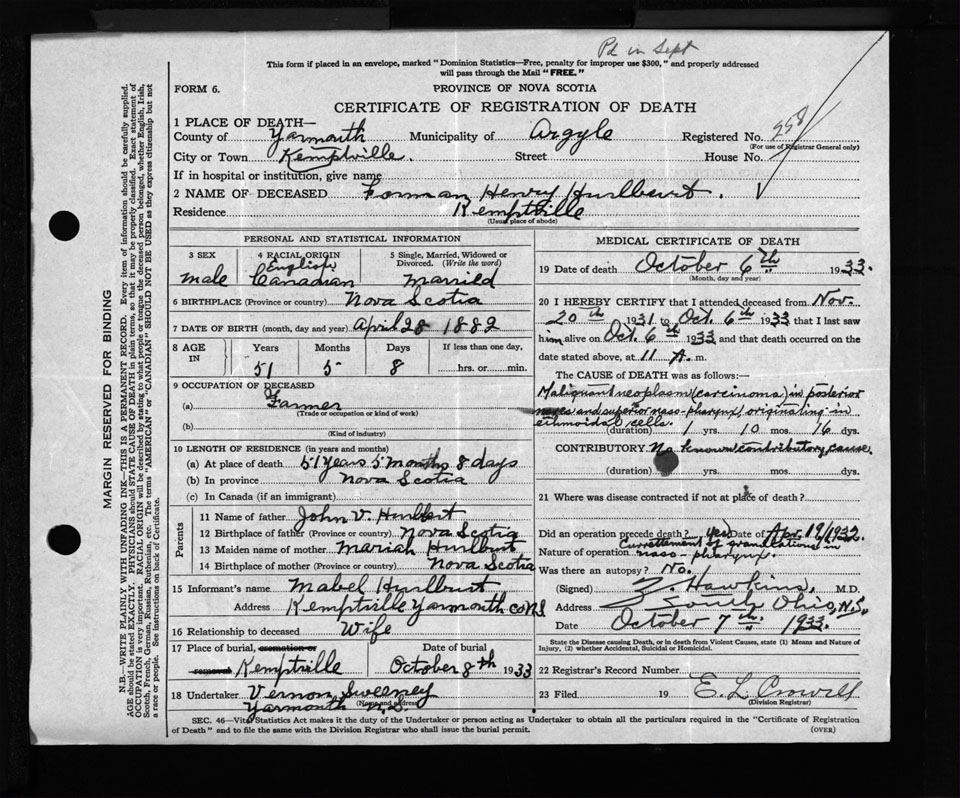 Pd in Sept
This form if placed in an envelope, marked "Dominion Statistics—Free, penalty for improper use $300," and properly addressed
will pass through the Mail "FREE."
FORM 6.
PROVINCE OF NOVA SCOTIA
CERTIFICATE OF REGISTRATION OF DEATH
1 PLACE OF DEATH—
County of Yarmouth Municipality of Argyle Registered No. 558
(For use of Registrar General only)
City or Town Kemptville. Street House No.
If in hospital or institution, give name
2 NAME OF DECEASED Forman Henry Hurlburt.
Residence Kemptville
(Usual place of abode)
PERSONAL AND STATISTICAL INFORMATION
3 SEX 4 RACIAL ORIGIN 5 Single, Married, Widowed or Divorced. (Write the word)
male English Canadian Married
6 BIRTHPLACE (Province or country) Nova Scotia
7 DATE OF BIRTH (month, day and year) April 28 1882
8 AGE IN Years Months Days If less than one day,
51 5 8 hrs. or min.
9 OCCUPATION OF DECEASED
(a) Farmer
(Trade or occupation or kind of work)
(b)
(Kind of industry)
10 LENGTH OF RESIDENCE (in years and months)
(a) At place of death 51 years 5 months 8 days
(b) In province Nova Scotia
(c) In Canada (if an immigrant)
Parents
11 Name of father John V. Hurlbert
12 Birthplace of father (Province or country) Nova Scotia
13 Maiden name of mother Mariah Hurlburt
14 Birthplace of mother (Province or country) Nova Scotia
15 Informant's name Mabel Hurlburt
Address Kemptville Yarmouth co NS
16 Relationship to deceased Wife
17 Place of burial, cremation or removal Kemptville
Date of burial October 8th 1933
18 Undertaker Vernon Sweeney
(Name and address)
Yarmouth N.S.
MEDICAL CERTIFICATE OF DEATH
19 Date of death October 6th 1933.
(Month, day and year)
20 I HEREBY CERTIFY that I attended deceased from Nov.
20th 1931 to Oct. 6th 1933 that I last saw
him alive on Oct. 6th 1933 and that death occurred on the
date stated above, at 11 A. m.
The CAUSE OF DEATH was as follows:—
Malignant neoplasm (carcinoma) in posterior
nares and superior naso-pharynx) originating in
ethmoidal cells.
(duration) 1 yrs. 10 mos. 16 dys.
CONTRIBUTORY No known contributory cause.
(duration) yrs. mos. dys.
21 Where was disease contracted if not at place of death?
Did an operation precede death? yes Date of Apr. 19/1932.
Nature of operation Currettement of granulations in
naso-pharynx.
Was there an autopsy? No.
(Signed) Z. Hawkins, M.D.
Address South Ohio, N.S.
Date October 7th 1933.
State the Disease causing Death, or in death from Violent Causes, state (1) Means and Nature of
Injury, (2) whether Accidental, Suicidal or Homicidal.
22 Registrar's Record Number
23 Filed 19 E. L. Crowell
(Division Registrar)
SEC. 46—Vital Statistics Act makes it the duty of the Undertaker or person acting as Undertaker to obtain all the particulars required in the "Certificate of Registration
of Death" and to file the same with the Division Registrar who shall issue the burial permit.
(OVER)
MARGIN RESERVED FOR BINDING
N.B.—WRITE PLAINLY WITH UNFADING INK—THIS IS A PERMANENT RECORD. Every item of information should be carefully supplied.
AGE should be stated EXACTLY. PHYSICIANS should STATE CAUSE OF DEATH in plain terms, so that it may be properly classified. Exact statement of
OCCUPATION is very important. RACIAL ORIGIN will be described by stating to what people or tongue the deceased person belonged, whether English, Irish,
Scotch, French, German, Russian, Ruthenian, etc. The terms "AMERICAN" or "CANADIAN" SHOULD NOT BE USED as they express citizenship but not
a race or people. See instructions on back of Certificate.